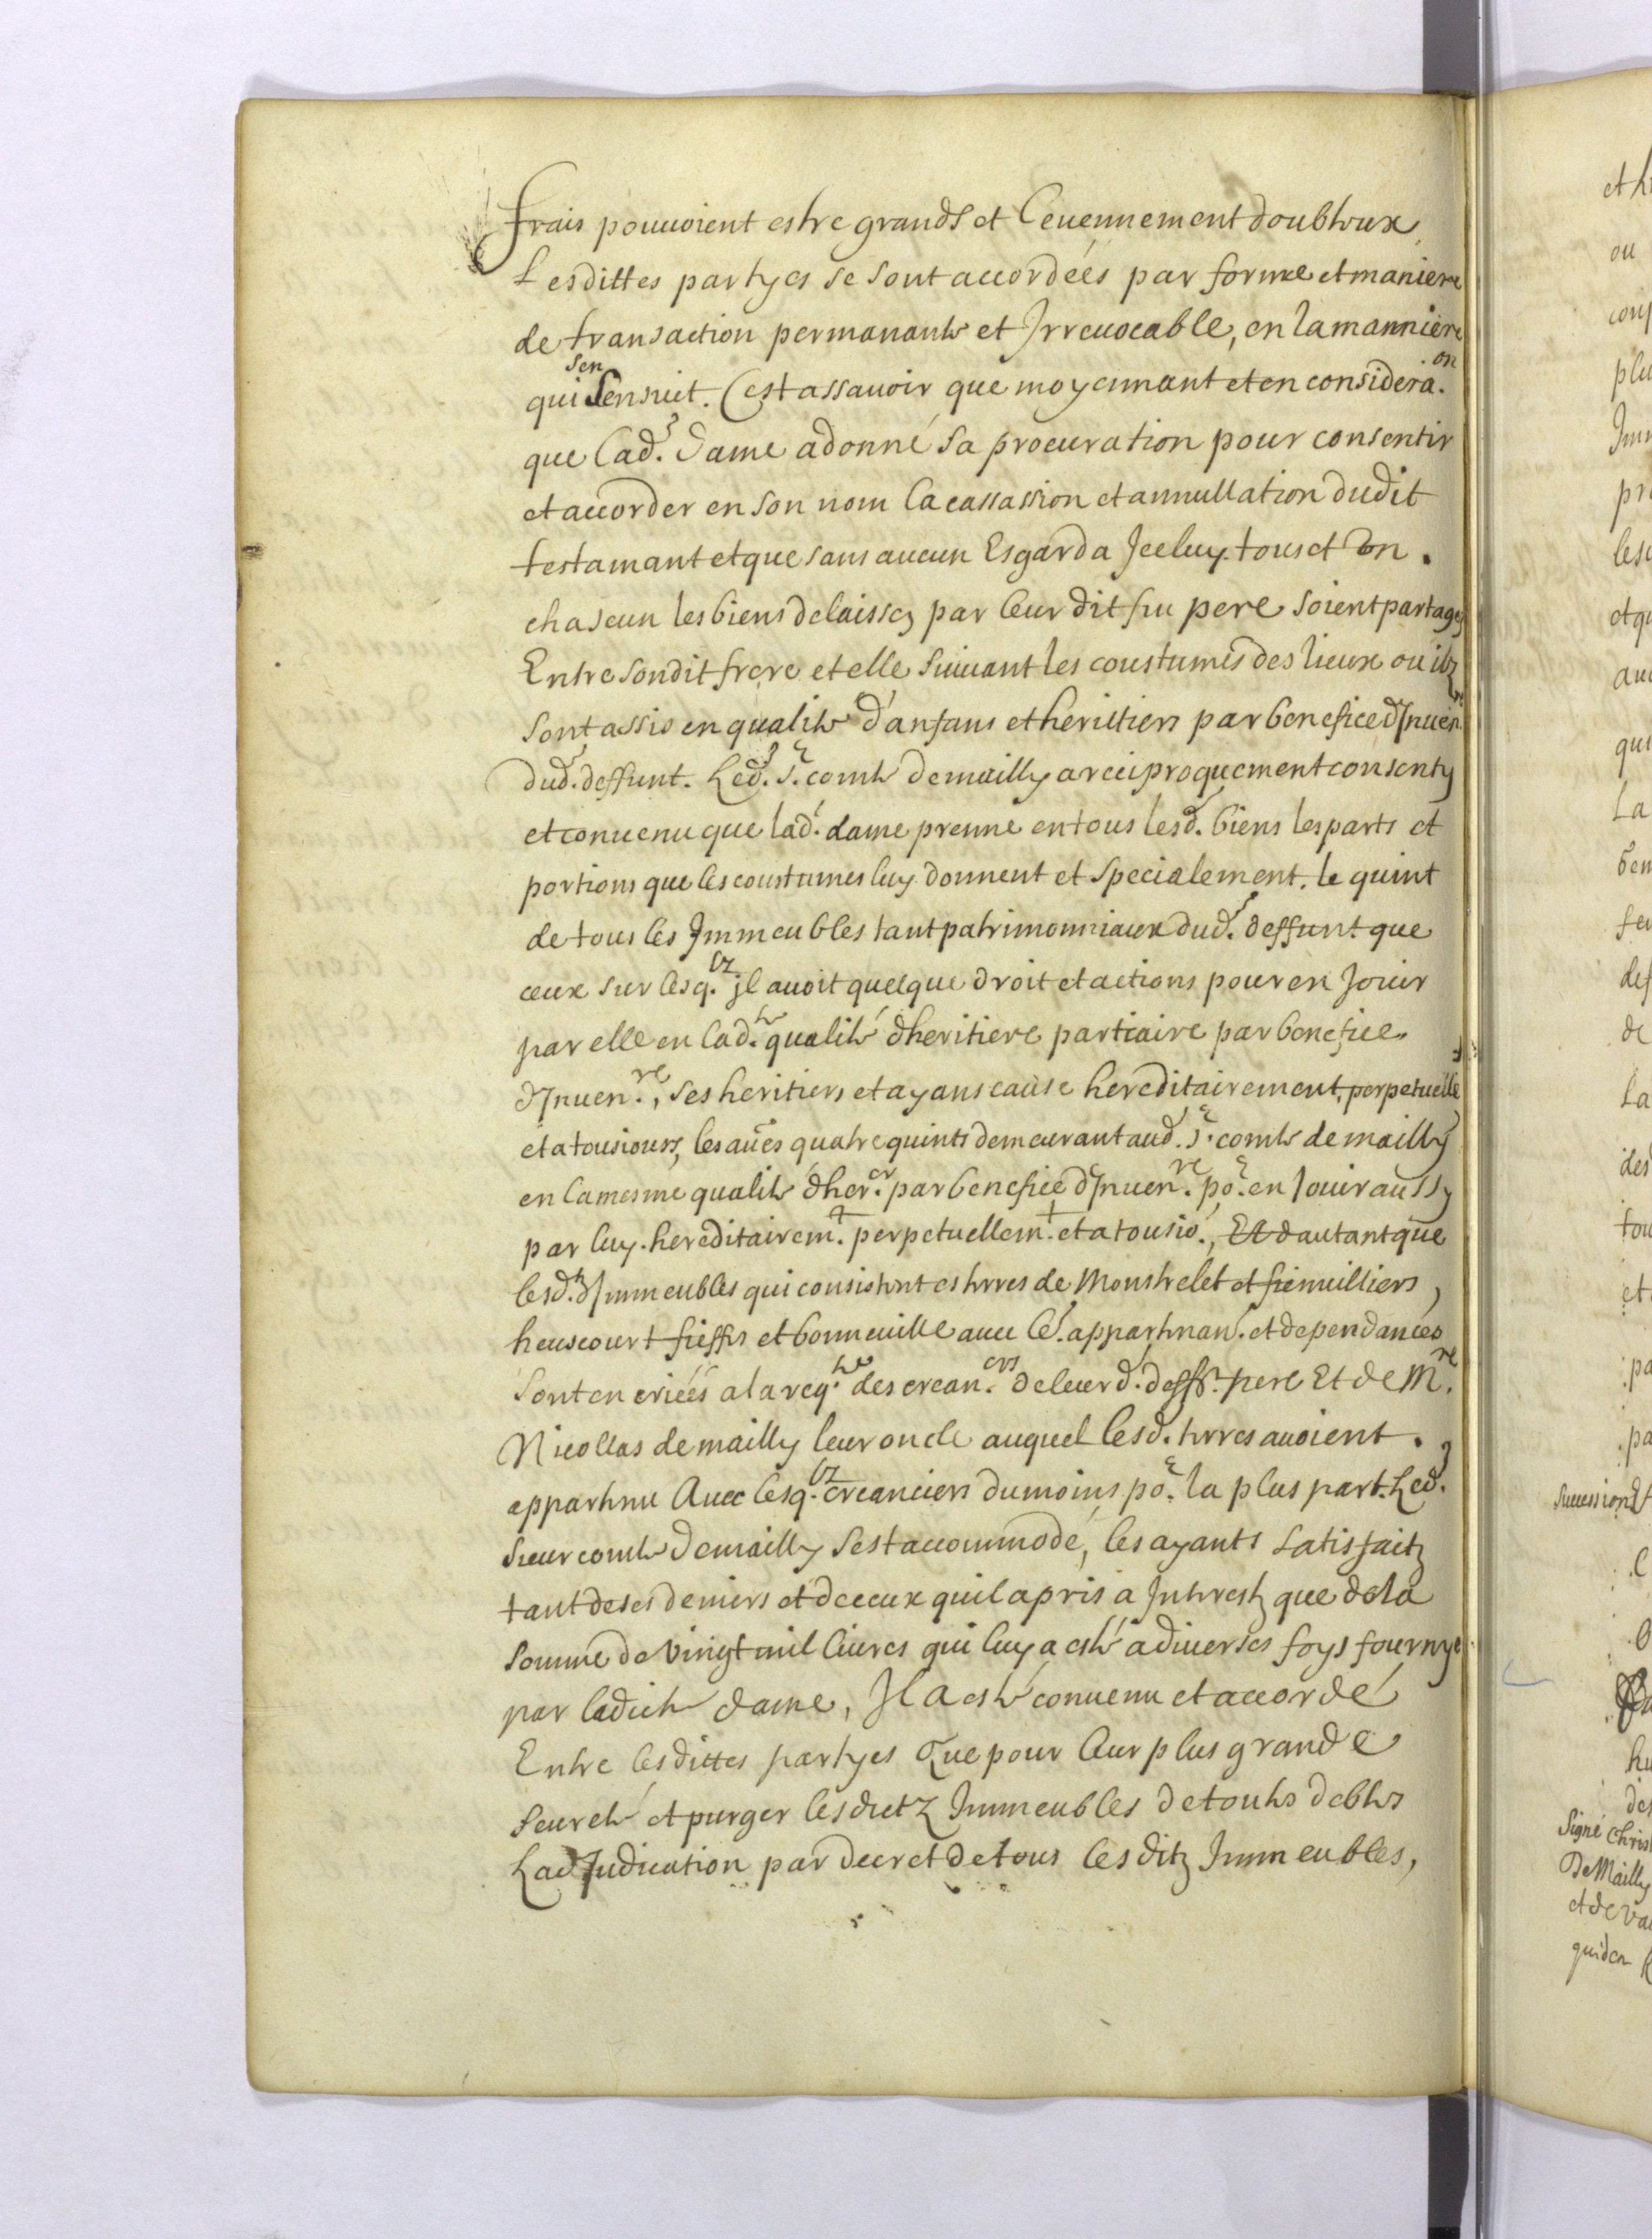 frais pouuoient estre grands et Leuennement doubteux
Lesdittes partyes se sont accordéés par forme et maniere
de transaction permanante et Irreuocable, en la manniere
qui Sen Sensuit. Cest assauoir que moyennant et en considera.on
que Lad. Dame a donné sa procuration pour consentir
et accorder en son nom La cassassion et annullation dudit
testamant et que sans aucun Esgard a Iceluy tous et Un .
chascun les biens delaissez par leur dit feu pere soient partagez
Entre sondit frere et elle suiuant les coustumes des lieux ou ilz
sont assis en qualite d'anfans et herittiers par benefice dInuen.re
dud. deffunt. Led. S.r comte demailly a reciproquement consenty
et conuenu que lad. dame prenne en tous lesd. biens les parts et
portions que les coustumes luy donnent et specialement. le quint
de tous les Immeubles tant patrimonniaux dud. deffunt que
ceux sur lesq.lz jl auoit quelque droit et actions pour en Jouir
par elle en lad.te qualité dheritiere partiaire par benefice
dInuen.re, ses heritiers et ayans cause hereditairement, perpetuellet
et a tousiours, les aues quatre quints demeurant aud. S.r comte de mailly
en la mesme qualité dher.er par benefice dInuen.re po.r en Jouir aussy
par luy. hereditairem.t perpetuellem.t et a tousio., Et dautant que
lesd. Immeubles qui consistent es terres de Monstrelet et fienuilliers,
heuscourt fieffes et bonneuille auec le. appartenan. et dependances
sont en criéés a la req.te des crean.ers de leur d. deff.t pere Et de M.re
Nicollas de mailly leur oncle auquel lesd. terres auoient .
appartenu Auec lesq.lz creanciers du moins po.r la plus part. Led.
sieur comte Demailly sest accommodé, les ayants satisfaitz
tant de ses deniers et de ceux quil a pris a Interestz que de la
somme de vingt mil liures qui luy a esté a diuerses foys fournye
par ladicte dame, Il a esté conuenu et accordé
Entre lesdittes partyes Que pour leur plus grande
seureté et purger lesdictz Immeubles de toutes debtes
Ladjudication par decret de tous lesditz Immeubles,